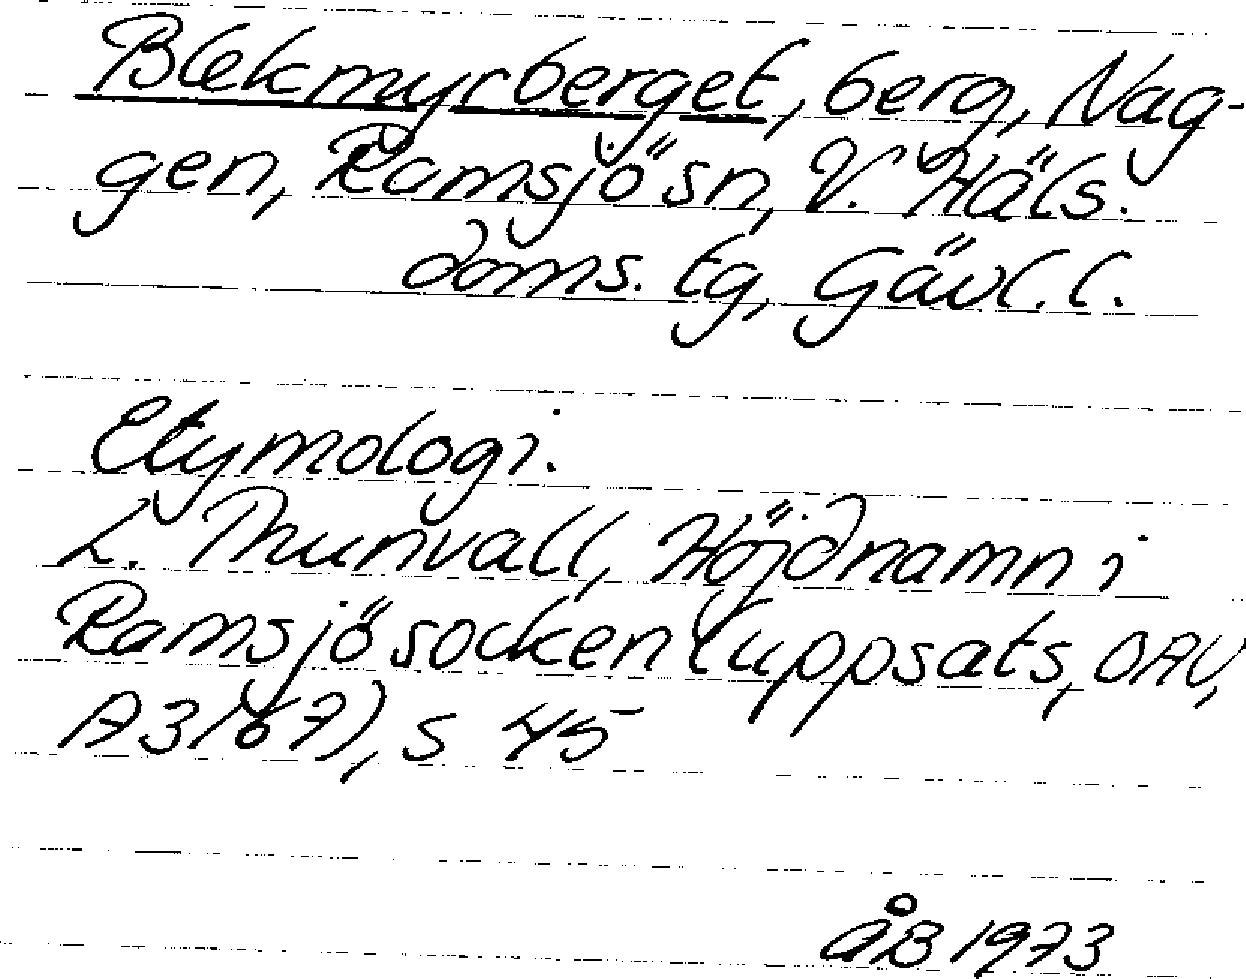 Blekmyrberget, berg, Nag-
gen, Ramsjö sn, V. Häls.
doms. tg, Gävl. l.
Etymologi.
L. Thunvall, Höjdnamn i
Ramsjö socken (uppsats, OAU,
A3/67), s 45
ÅB 1973